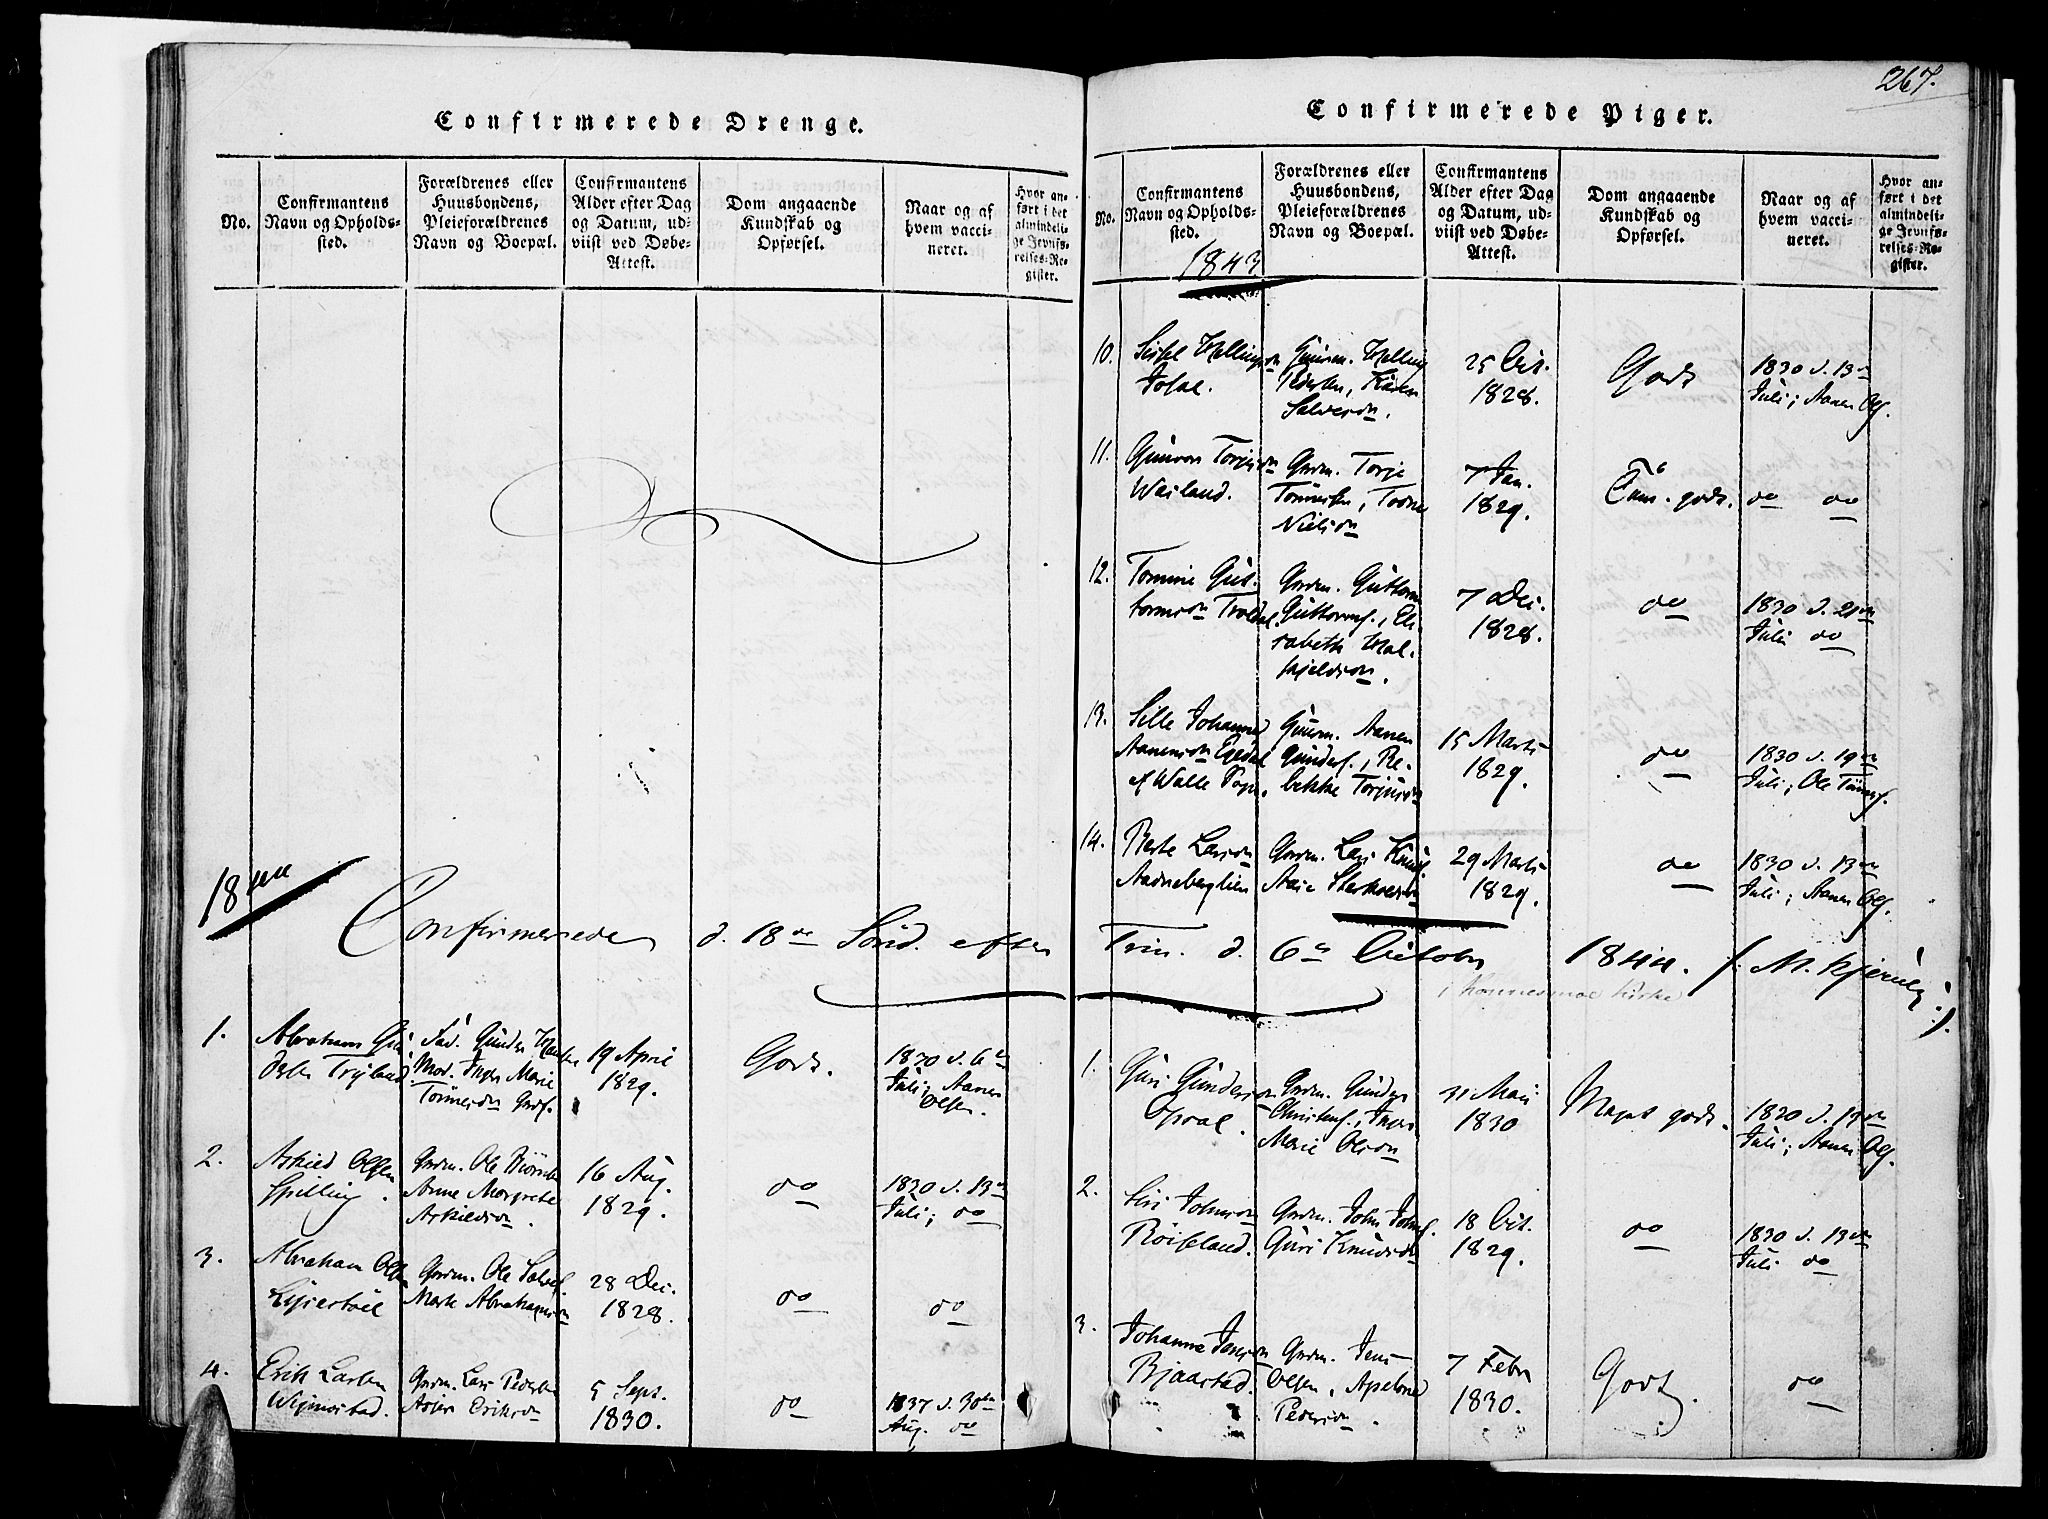 Confirmerede Drenge.
No.
Confirmantens
Navn og Opholds-
sted.
Forældrenes eller
Huusbondens,
Pleieforældrenes
Navn og Boepæl.
Confirmantens
Alder efter Dag
og Datum, ud-
viist ved Døbe-
Attest.
Dom angaaende
Kundskab og
Opførsel.
Naar og af
hvem vacci-
neret.
Hvor an-
ført i det
almindeli-
ge Jevnfø-
relses-Re-
gister.
1844
Confirmerede d. 18de Sönd. efter
1.
Abraham Gun
dersen Tryland
Fad. Gunder
Mod. Inger Marie
Tönnesdn
19 April
1829.
Godt.
1830 d. 6te
Juli; Aanen
Olsen.
2.
Askied Olsen
Spilling.
Grdm. Ole
Anne Margrethe
Askiedsdn.
16 Aug.
1829.
do
1830 d. 13de
Juli; do
3.
Abraham Olsen
Grdm. Ole Salves.
Marte Abrahamsdn
28 Dec.
1828.
do
do
4.
Erik Larsen
Wigmostad.
Grdm. Lars Pedersen
Eriksdn
5 Sept.
1830.
do
1837 d. 30te
Aug. do
267.
Confirmerede Piger.
No.
Confirmantens
Navn og Opholds-
sted.
Forældrenes eller
Huusbondens,
Pleieforældrenes
Navn og Boepæl.
Confirmantens
Alder efter Dag
og Datum, ud-
viist ved Døbe-
Attest.
Dom angaaende
Kundskab og
Opførsel.
Naar og af
hvem vacci-
neret.
Hvor an-
ført i det
almindeli-
ge Jevnfø-
relses-Re-
gister.
1843
10.
Sissel Hellingsdn
Gunvm. Helling
Pedersen, Karen
Salvesdn.
25 Oct.
1828.
Godt
1830 d. 13de
Juli; Aanen Ols.
11.
Gunvor Torjusdn
Wasland.
Grdm. Torje
Tönnesen, Torne
Nielsdn
7 Jan.
1829.
Tem. godt.
do do
12.
Tomine Gut-
tormsdn Troldal.
Grdm. Guttorm
Guttorms., Eli-
sabeth
7 Dec.
1828.
do
1830 d. 21de
Juli do
13.
Sille Johanne
Aanensdn Egedal
af Walle Sogn.
Aanen
Gunders., Re-
bekke Torjusdn
15 Marts
1829.
do
1830 d. 19de
Juli; Ole Tönnes.
14.
Berte Larsdn
Aadneberglien
Grdm. Lars Knuds.
Aase
29 Marts
1829.
do
1830 d. 13de
Juli; Aanen Ols.
Trin. d. 6te October 1844.
i Konnesmoe kirke
1.
Guri Gundersdn
Opsal.
Grdm. Gunder
Christens., Inger
Marie Olsdn
31 Mai
1830
Meget godt.
1830 d. 13de
Juli; Aanen Ols.
2.
Siri Johnsdn
Röiseland.
Grdm. John Johns.
Guri Knudsdn
18 Oct.
1829.
do
1830 d. 13de
Juli do
3.
Johanne Jensdn
Bjaastad.
Grdm. Jens
Olsen, Apelone
Pedersdn.
7 Febr
1830.
Godt
do